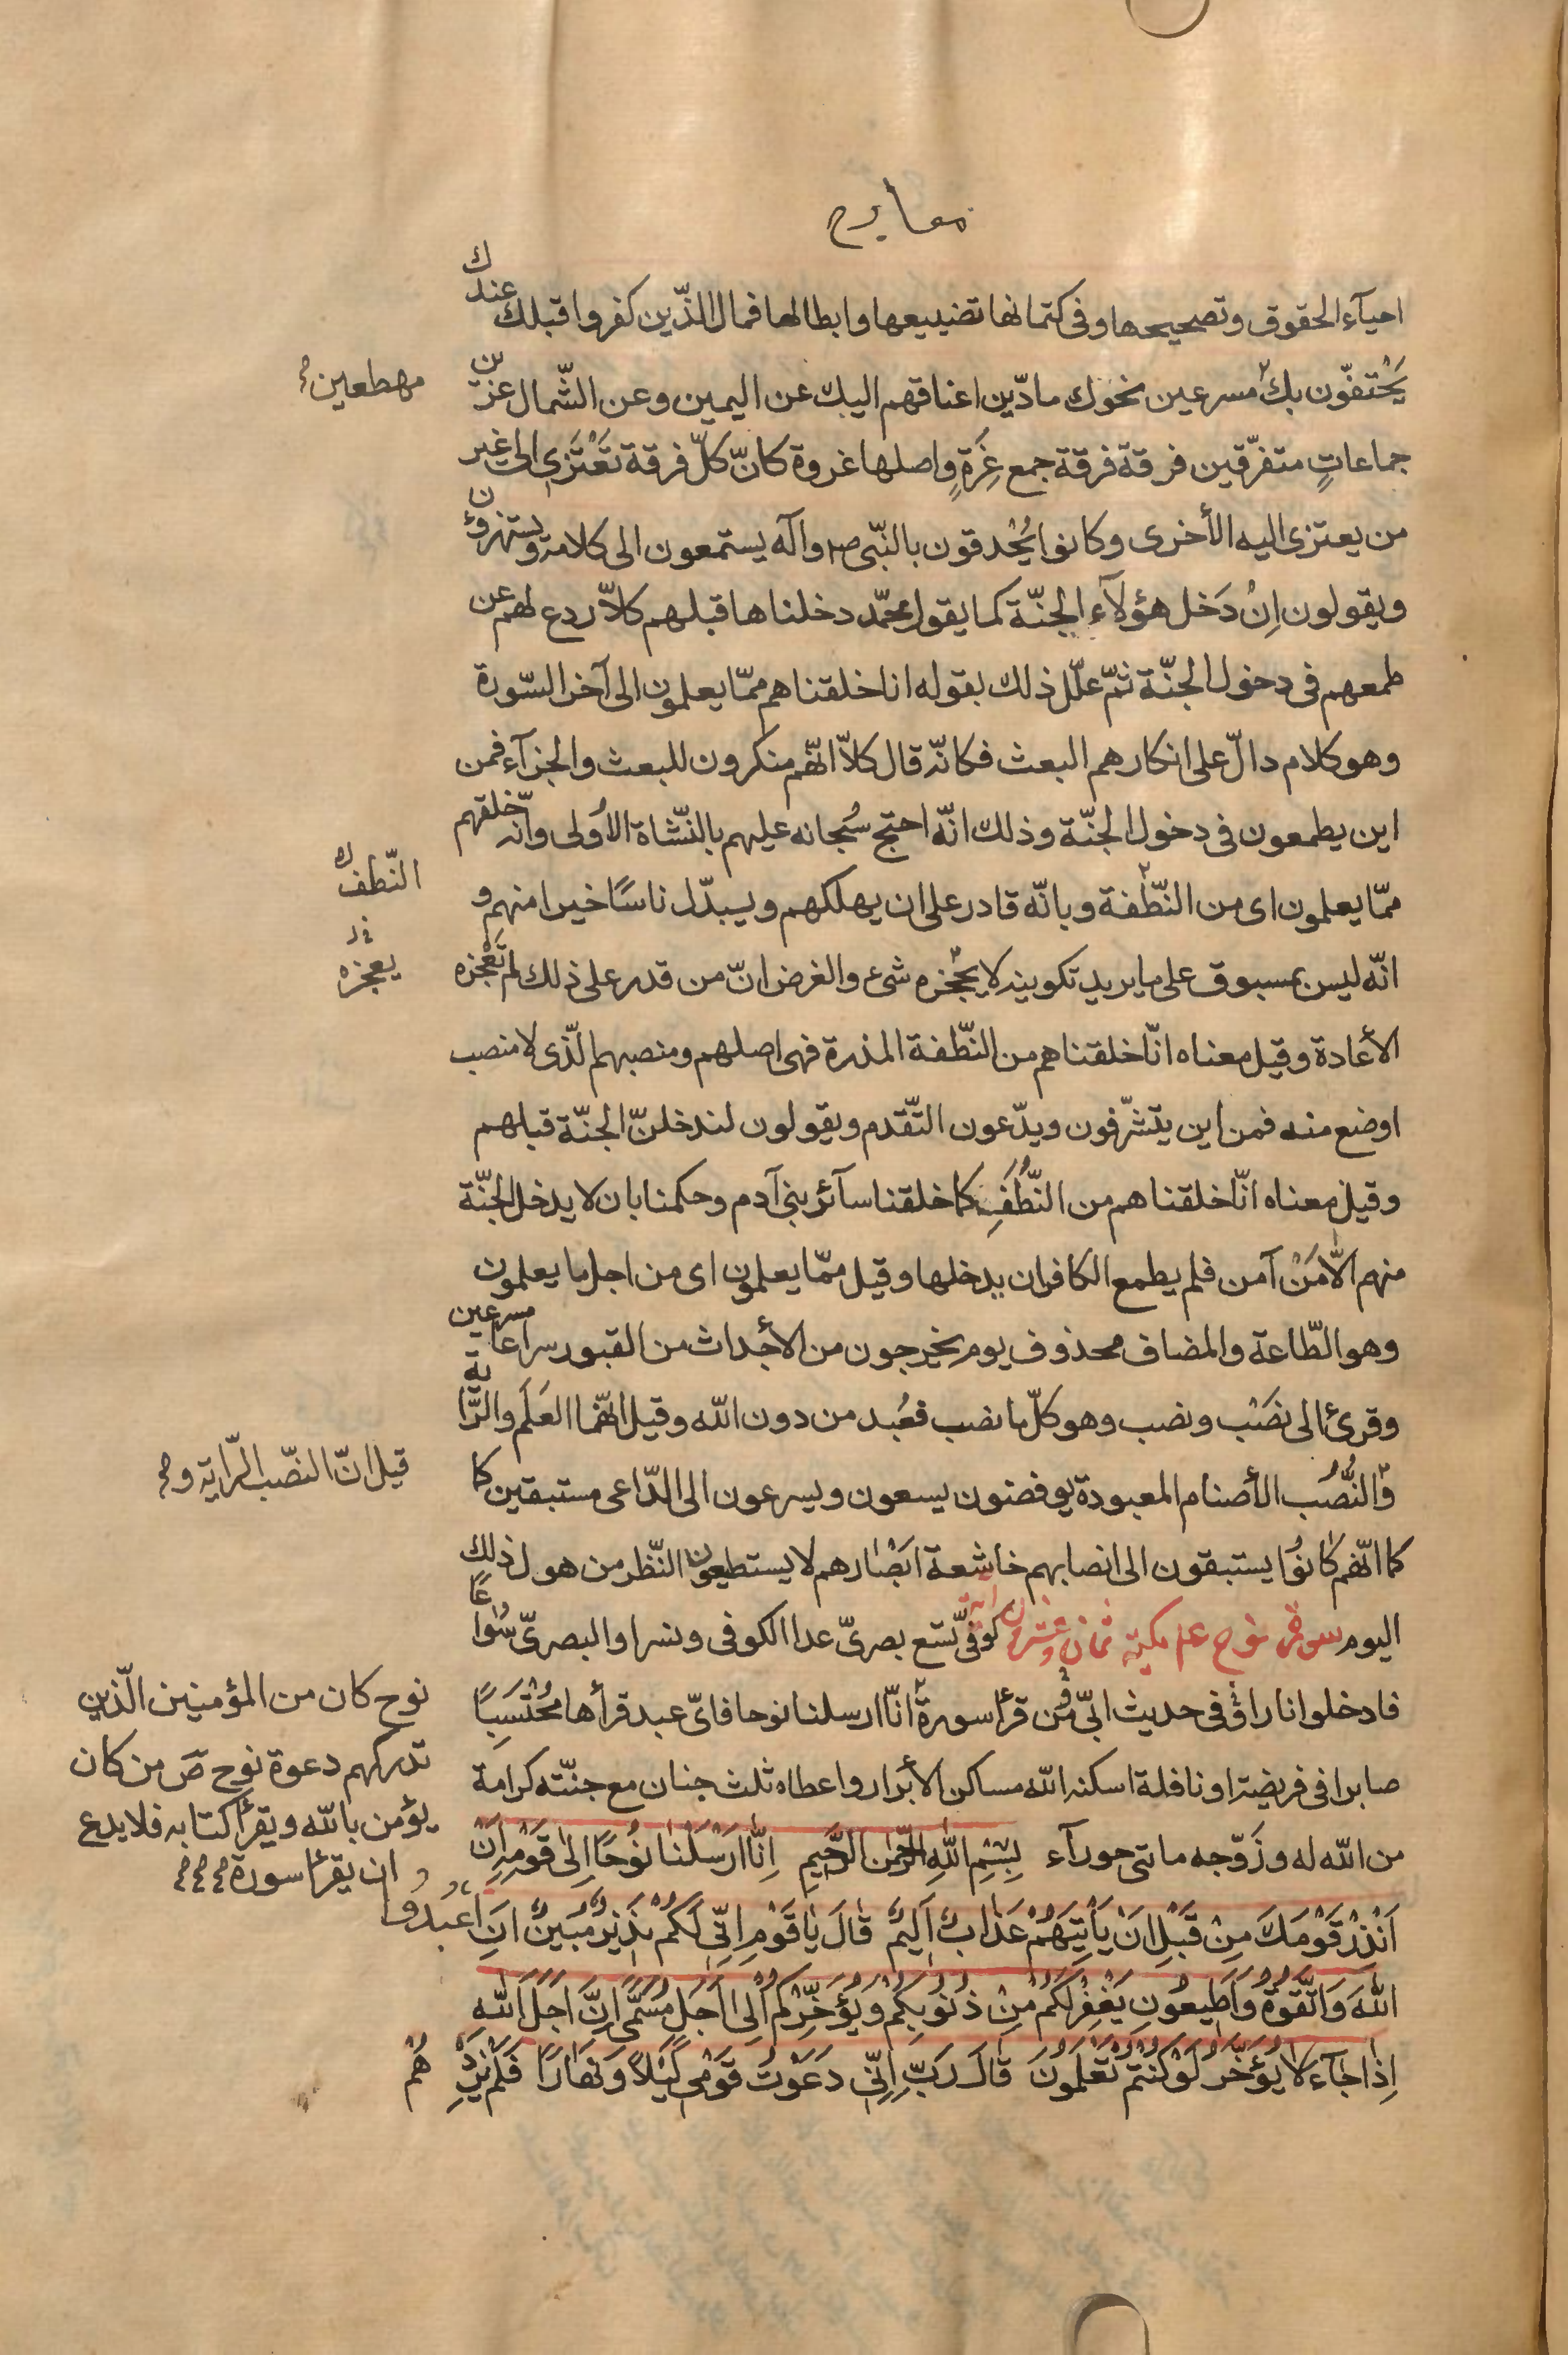 معارج
احيآء الحقوق وتصحيحها وفى كتمانها تضييعها وابطالها فمال الذّين كفروا قبلك عندك
يَحْتفّون بك مسرعين نحوك مادّين اعناقهم اليك عن اليمين وعن الشّمال عزين
مهطعين
جماعاتٍ متفرّقين فرقة فرقة جمع عِزَةٍ واصلها عزوة كانّ كلّ فرقة تَعْتَزى الى غير
من يعتزى اليه الأخرى وكانوا يُحْدقون بالنّبى ص وآله يستمعون الى كلامه ويستهزؤن
ويقولون اِنْ دَخل هؤلآء الجنّة كما يقول محمّد دخلناها قبلهم كلاّ ردع لهم عن
طمعهم فى دخول الجنّة ثمّ علّل ذلك بقوله انا خلقناهم ممّا يعلمون الى آخر السّورة
وهو كلام دالّ على انكارهم البعث فكانّه قال كلاّ انّهم منكرون للبعث والجزآء فمن
اين يطمعون فى دخول الجنّة وذلك انّه احتج سُبحانه عليهم بالنّشاة الأولى وانّه خلقهم
ممّا يعلمون اى من النّطفة وبانّه قادر على ان يهلكهم ويبدّل ناسًا خيرا منهم و
النّطف
انّه ليس بمسبوق على ما يريد تكوينه لا يعجزه شىء والغرض انّ من قدر على ذلك لم تُعْجزه
يعجزه
الأعادة وقيل معناه انّا خلقناهم من النّطفة المذرة فهى اصلهم ومنصبهم الّذى لا منصب
اوضع منه فمن اين يتشرّفون ويدّعون التّقدم ويقولون لندخلنّ الجنّة قبلهم
وقيل معناه انّا خلقناهم من النُّطَفِ كما خلقنا سآئر بنى آدم وحكمنا بان لا يدخل الجنّة
منهم الاّ مَنْ آمن فلم يطمع الكافر ان يدخلها وقيل ممّا يعلمون اى من اجل ما يعلمون
وهو الطّاعة والمضاف محذوف يوم يخرجون من الأجداث من القبور سراعا مسرعين
وقرئ الى نصْب ونصب وهو كلّ ما نصب فعُبد من دون الله وقيل انّهما العَلَم والرّاية
والنُّصُب الأصنام المعبودة يوفضون يسعون ويسرعون الى الدّاعى مستبقين كما
قيل انّ النصّب الرّاية و
كما انّهم كانُوا يستبقون الى انصابهم خاشعة ابْصارهم لا يستطيعون النّظر من هول ذلك
اليوم سورة نوح عم مكية ثمان وعشرون آية كوفىّ تسع بصرىّ عدا الكوفى ونسرا والبصرىّ سُواعًا
فادخلوا نارا ق فى حديث ابىّ من قرأ سورة انّا ارسلنا نوحا فاىّ عبد قرأها مُحْتَسِبًا
صابرا فى فريضة او نافلة اسكنه الله مساكن الأبرار واعطاه ثلث جنان مع جنّته كرامة
من الله له وزَوّجه ماتى حورآء بِسْمِ اللهِ الرّحْمٰنِ الرَّحيمِ اِنّا اَرْسَلْنا نُوحًا اِلى قَوْمِهِ اَنْ
نوح كان من المؤمنين الّذين
تدركهم دعوة نوح ص من كان
يؤمن بالله ويقرأ كتابه فلا يدع
ان يقرأ سورة
اَنْذِرْ قَوْمَكَ مِنْ قَبْلِ اَنْ يَأْتِيَهُمْ عَذابٌ اَليمٌ قالَ يا قَوْمِ اِنّى لَكُمْ نَذيرٌ مُبينٌ اَنِ اعْبُدُوا
اللهَ وَاتَّقُوهُ وَاَطيعُونِ يَغْفِرْ لَكُمْ مِنْ ذُنُوبِكُمْ وَيُؤَخِّرْكُمْ اِلى اَجَلٍ مُسَمًّى اِنَّ اَجَلَ اللهِ
اِذا جآءَ لا يُؤَخَّرُ لَوْ كُنْتُمْ تَعْلَمُونَ قالَ رَبِّ اِنّى دَعَوْتُ قَوْمى لَيْلاً وَنَهارًا فَلَمْ يَزِدْهُمْ